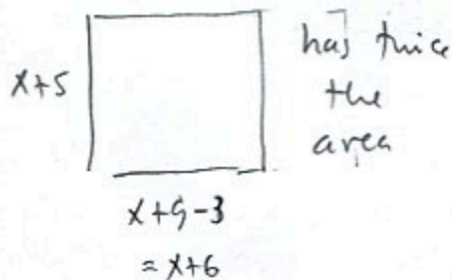 x+5
has twice
the
area
x+9-3
= x+6